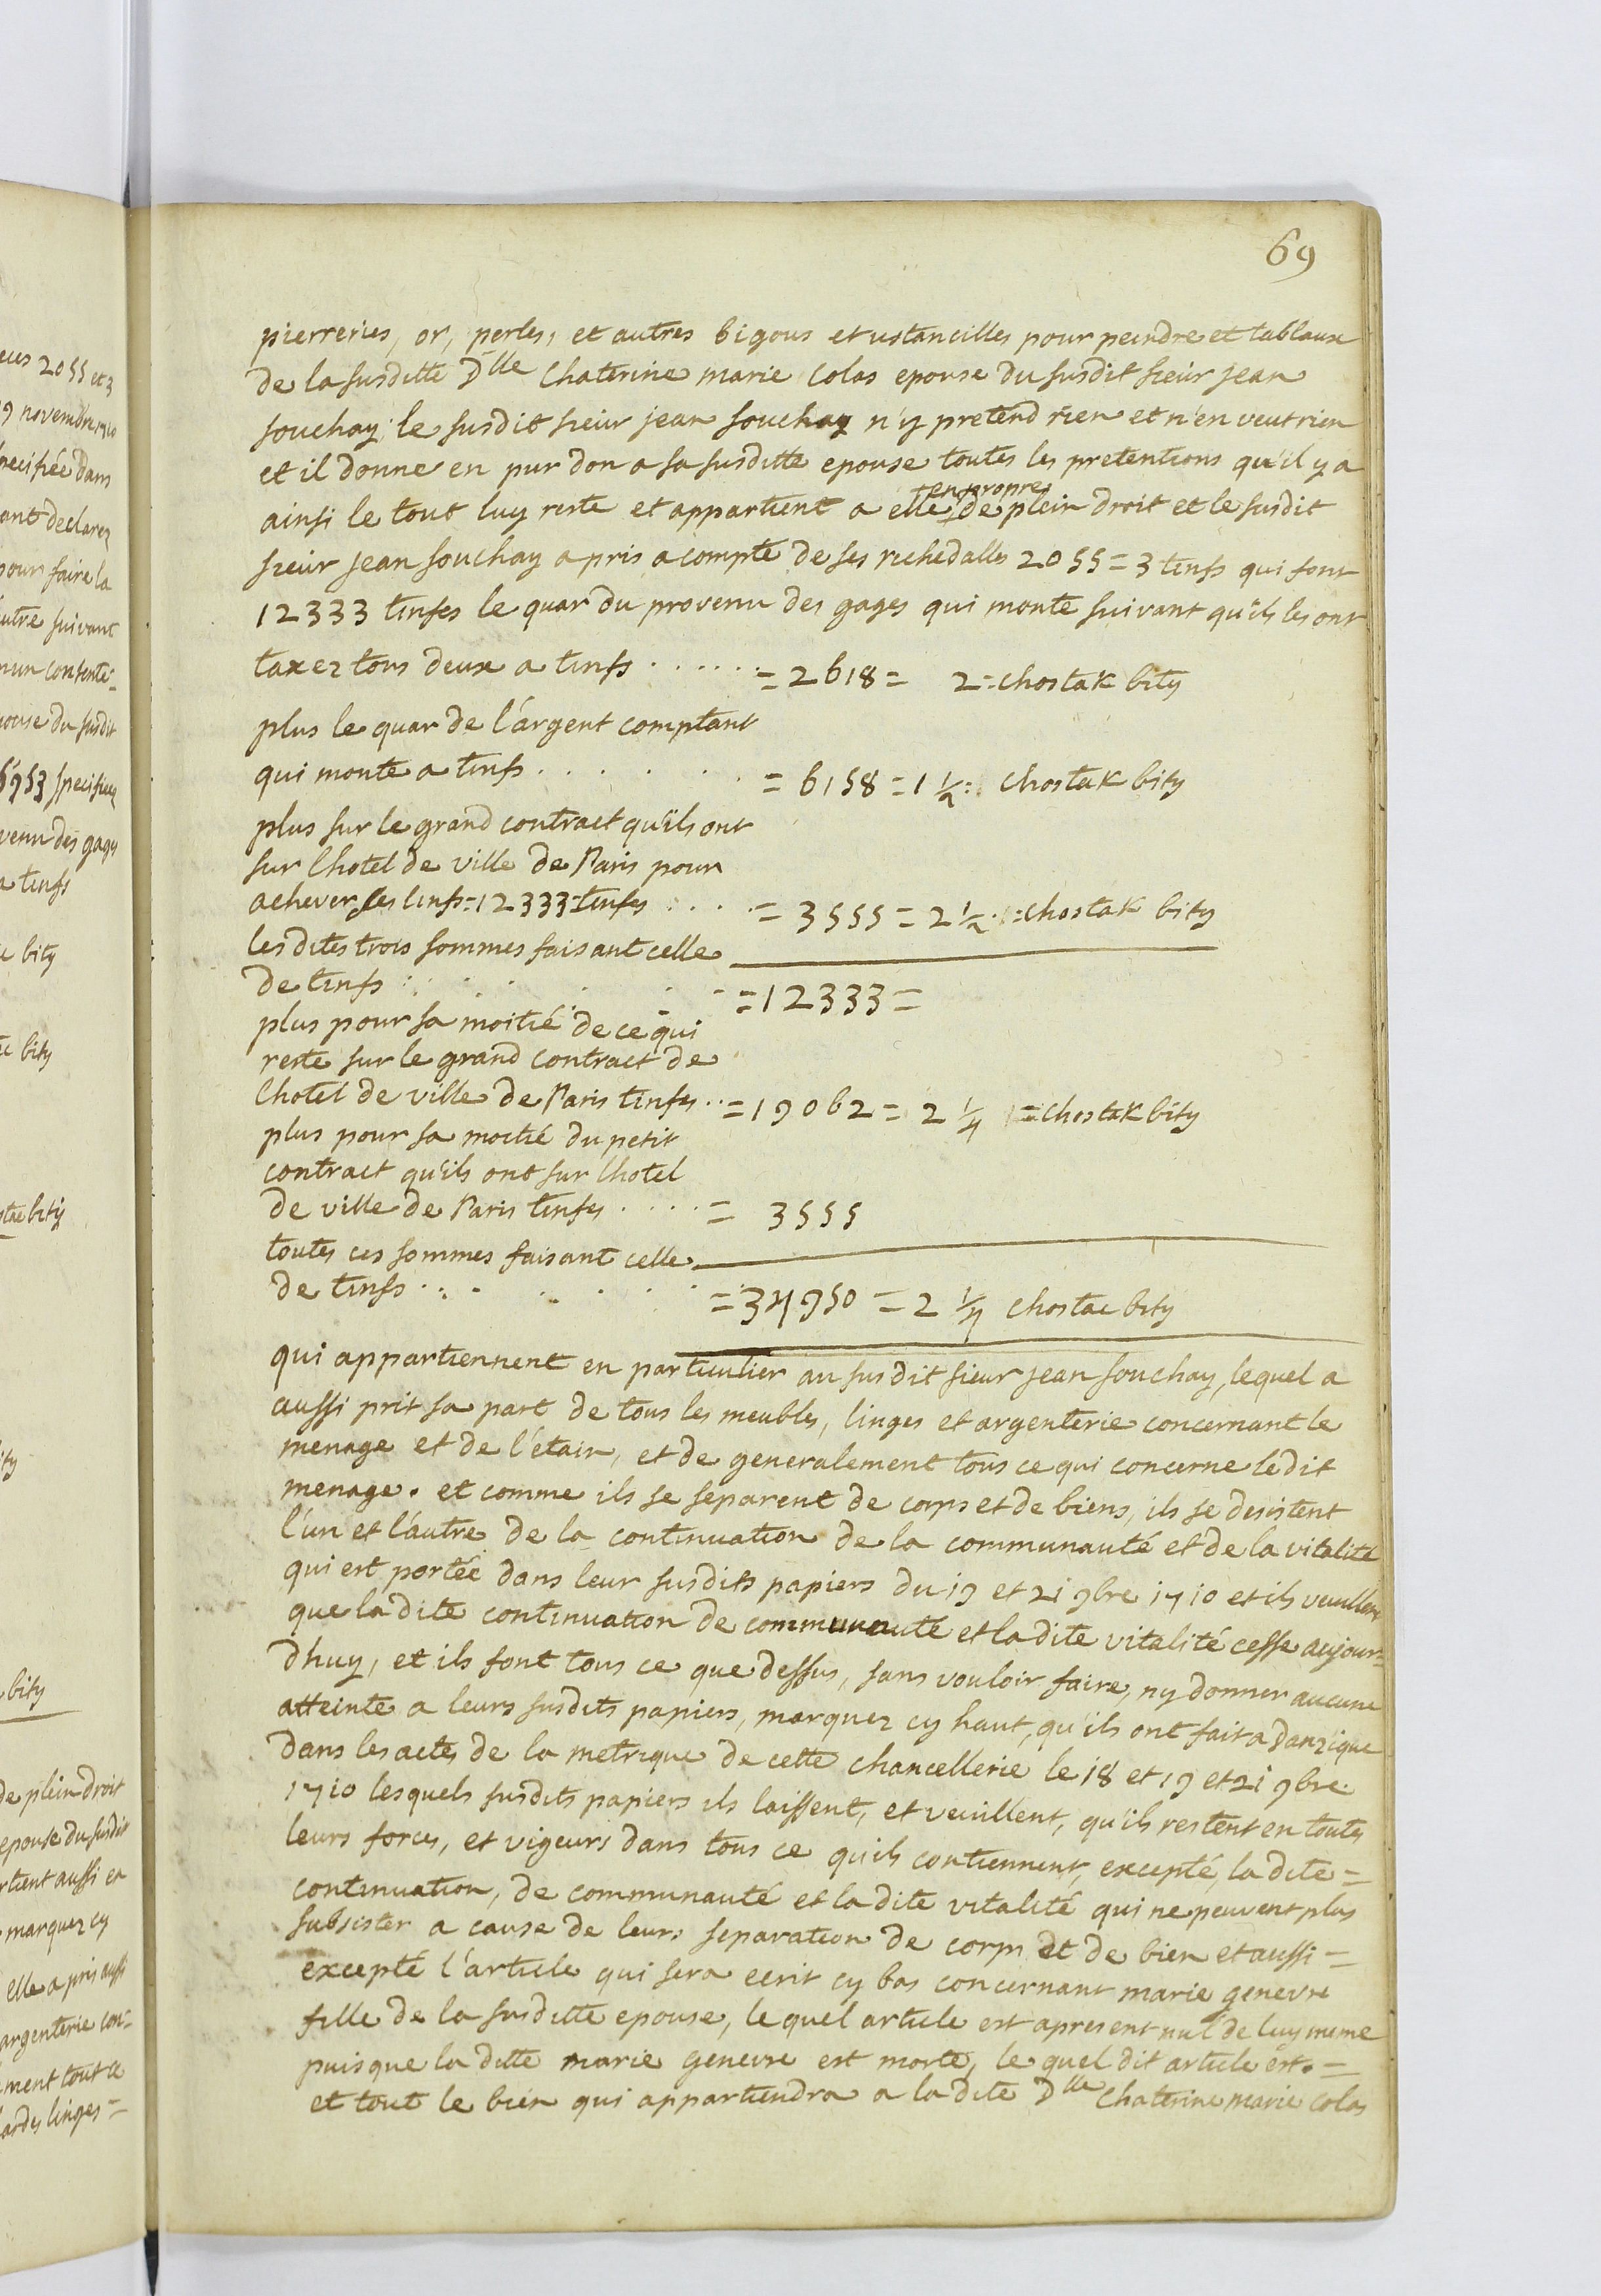 69
pierreries, or, perles, et autres bigous et ustancilles pour peindre et tablaux
de la susditte Dlle Chaterine marie Colas epouse du susdit sieur jean
souchay; le susdit sieur jean souchay n'y pretend rien et n'en veut rien
et il donne en pur don a sa susditte epouse toutes les pretentions qu'il y a
ainsi le tout luy reste et appartient a elle en propre de plein droit et le susdit
sieur jean souchay a pris a compte de ses richedalles 2055 = 3 tinfs qui font
12333 tinfes le quar du provenu des gages qui monte suivant qu'ils les ont
taxez tous deux a tinfs . . . . . . = 2618 = 2 = chostak bity
plus le quar de l'argent comptant
qui monte a tinfs . . . . . . = 6158 = 1 1/2 : chostak bity
plus sur le grand contract qu'ils ont
sur lhotel de ville de Paris pour
achever les tinfs = 12333 = tinfes . . . . = 3555 = 2 1/2 . : chostak bity
les dites trois sommes faisant celle
de tinfs . . . . . . = 12333 =
plus pour sa moitié de ce qui
reste sur le grand contract de
lhotel de ville de Paris tinfes . . = 19062 = 2 1/4 = chostak bity
plus pour sa moitié du petit
contract qu'ils ont sur lhotel
de ville de Paris tinfes . . . . = 3555
toutes ces sommes faisant celle
de tinfs . . . . . . = 34950 = 2 1/4 chostac bity
qui appartiennent en particulier au susdit sieur jean souchay, lequel a
aussi prit sa part de tous les meubles, linges et argenterie concernant le
menage et de l'étain, et de generalement tous ce qui concerne le dit
menage. et comme ils se separent de corps et de biens, ils se desistent
l'un et l'autre de la continuation de la communauté et de la vitalité
qui est portée dans leur susdits papiers du 19 et 21 9bre 1710 et ils veuillent
que la dite continuation de communauté et la dite vitalité cesse aujour=
dhuy, et ils font tous ce que dessus, sans vouloir faire, ny donner aucune
atteinte a leurs susdits papiers, marquez cy haut, qu'ils ont fait a Danzique
dans les actes de la metrique de cette chancellerie le 18 et 19 et 21 9bre
1710 lesquels susdits papiers ils laissent, et veuillent, qu'ils restent en toutes
leurs forces, et vigeurs dans tous ce qu'ils contiennent, excepté, la dite =
continuation, de communauté et la dite vitalité qui ne peuvent plus
subsister a cause de leurs separation de corps et de bien et aussi =
excepté l'article qui sera ecrit cy bas concernant marie genevre
fille de la susditte epouse, lequel article est apresent nul de luy meme
puisque la ditte marie genevre est morte, le quel dit article est. =
et tout le bien qui appartiendra a la dite Dlle Chaterine marie Colas
2055 et 3
novembre 1710
dans
declarez
pour faire la
suivant
du susdit
specifiez
des gages
tinfs
bity
bity
bity
bity
de plein droit
epouse du susdit
aussi en
marquez cy
elle a pris aussi
argenterie con=
tout ce
linges =